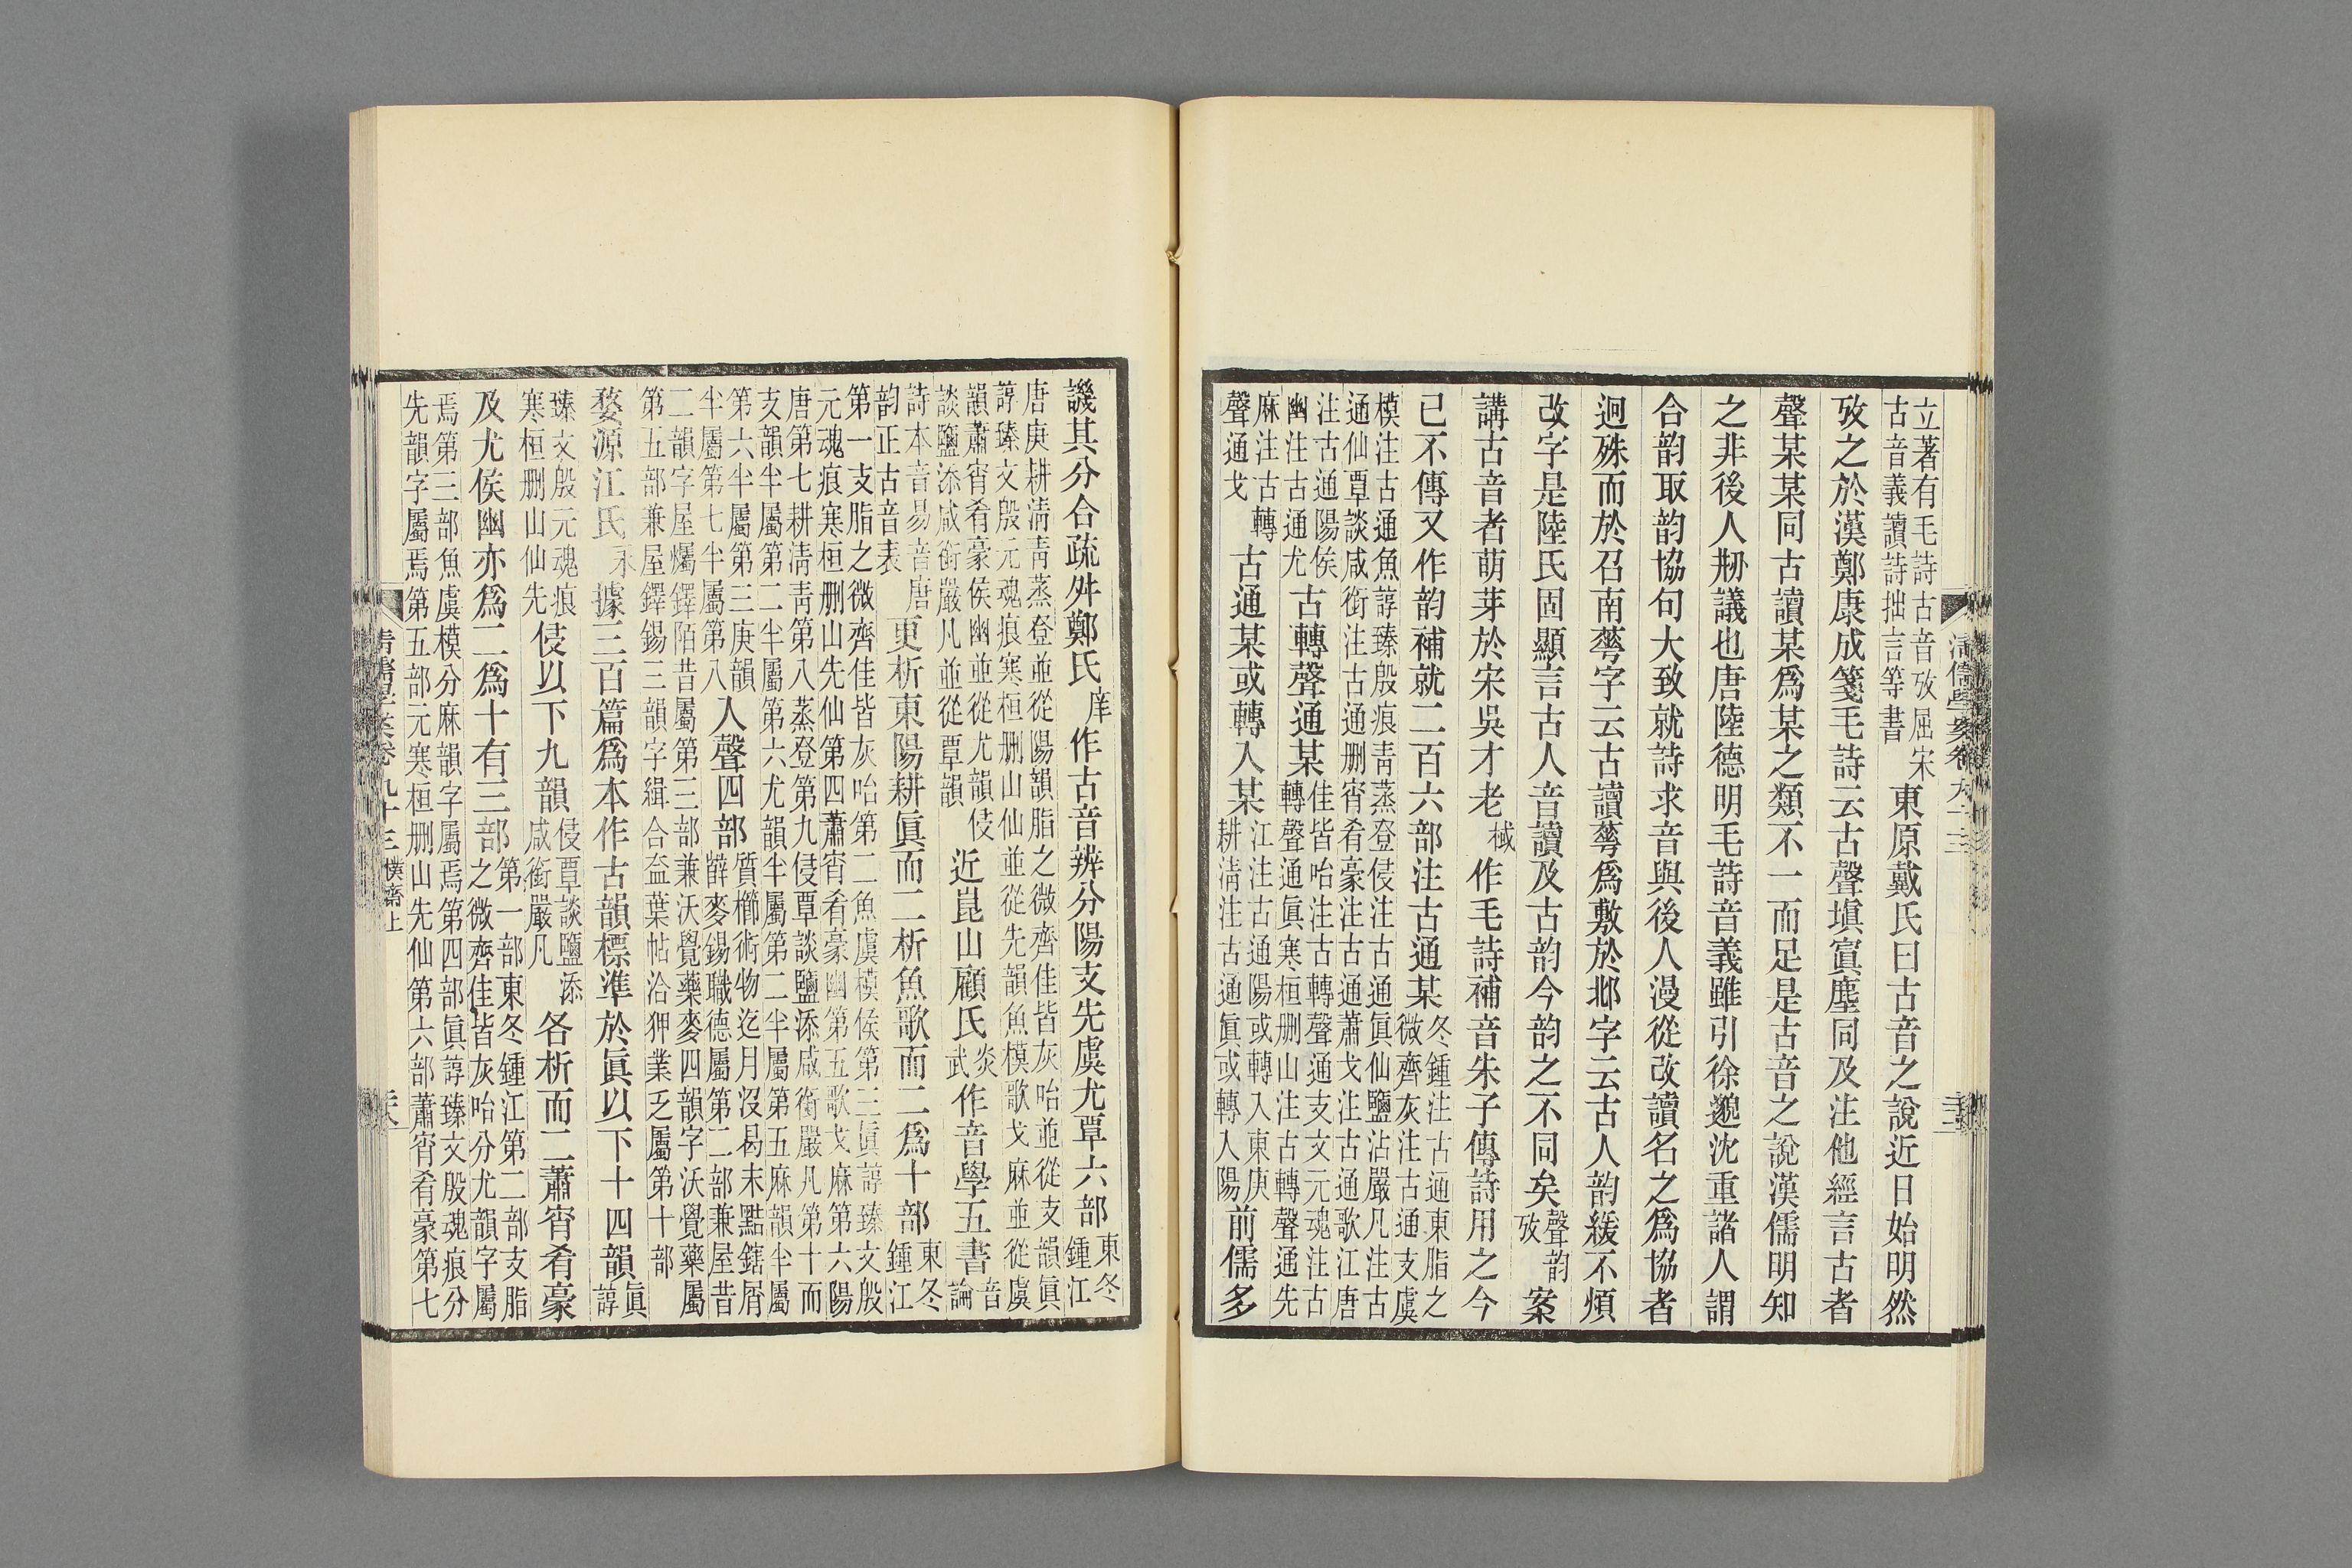 清儒學案卷九十三
立著有毛詩古音攷屈宋
古音義讀詩拙言等書
東原戴氏曰古音之說近日始明然
攷之於漢鄭康成箋毛詩云古聲塡寘塵同及注他經言古者
聲某某同古讀某爲某之類不一而足是古音之說漢儒明知
之非後人刱議也唐陸德明毛詩音義雖引徐邈沈重諸人謂
合韵取韵協句大致就詩求音與後人漫從改讀名之爲協者
迥殊而於召南蕚字云古讀蕚爲敷於邶字云古人韵緩不煩
改字是陸氏固顯言古人音讀及古韵今韵之不同矣聲韵攷案
講古音者萌芽於宋吳才老棫作毛詩補音朱子傳詩用之今
已不傳又作韵補就二百六部注古通某
冬鍾注古通東脂之
微齊灰注古通支虞
模注古通魚諄臻殷痕青蒸登侵注古通眞仙鹽沾嚴凡注古
通仙覃談咸銜注古通删宵肴豪注古通蕭戈注古通歌江唐
注古通陽侯
幽注古通尤
古轉聲通某
佳皆咍注古轉聲通支文元魂注古
轉聲通眞寒桓删山注古轉聲通先
麻注古轉
聲通戈
古通某或轉入某
江注古通陽或轉入東庚
耕清注古通眞或轉入陽
前儒多
譏其分合疏舛鄭氏庠作古音辨分陽支先虞尤覃六部
東冬
鍾江
唐庚耕清青蒸登並從陽韻脂之微齊佳皆灰咍並從支韻眞
諄臻文殷元魂痕寒桓删山仙並從先韻魚模歌戈麻並從虞
韻蕭宵肴豪侯幽並從尤韻侵
談鹽添咸銜嚴凡並從覃韻
近崑山顧氏炎武作音學五書
音
論
詩本音易音唐
韵正古音表
更析東陽耕眞而二析魚歌而二爲十部
東冬
鍾江
第一支脂之微齊佳皆灰咍第二魚虞模侯第三眞諄臻文殷
元魂痕寒桓删山先仙第四蕭宵肴豪幽第五歌戈麻第六陽
唐第七耕清青第八蒸登第九侵覃談鹽添咸銜嚴凡第十而
支韻半屬第二半屬第六尤韻半屬第二半屬第五麻韻半屬
第六半屬第三庚韻
半屬第七半屬第八
入聲四部
質櫛術物迄月沒曷末黠鎋屑
薛麥錫職德屬第二部兼屋昔
二韻字屋燭鐸陌昔屬第三部兼沃覺藥麥四韻字沃覺藥屬
第五部兼屋鐸錫三韻字緝合盍葉帖洽狎業乏屬第十部
婺源江氏永據三百篇爲本作古韻標準於眞以下十四韻
眞
諄
臻文殷元魂痕
寒桓删山仙先
侵以下九韻
侵覃談鹽添
咸銜嚴凡
各析而二蕭宵肴豪
及尤侯幽亦爲二爲十有三部
第一部東冬鍾江第二部支脂
之微齊佳皆灰咍分尤韻字屬
焉第三部魚虞模分麻韻字屬焉第四部眞諄臻文殷魂痕分
先韻字屬焉第五部元寒桓删山先仙第六部蕭宵肴豪第七
清儒學案卷九十三 樸齋上